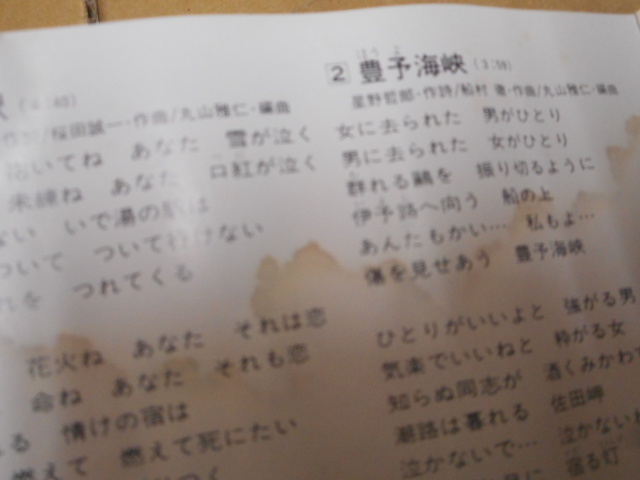 (4:40)
桜田誠一・作曲/丸山雅仁・編曲
抱いてね あなた 雪が泣く
未練ね あなた 口紅が泣く
ない いで湯の駅は
ついて ついて行けない
つれてくる
花火ね あなた それは恋
命ね あなた それも恋
情けの宿は
燃えて 燃えて死にたい
2 豊予海峡 (3:59)
ほうよ
星野哲郎・作詩/船村 徹・作曲/丸山雅仁・編曲
女に去られた 男がひとり
男に去られた 女がひとり
群れる鷗を 振り切るように
伊予路へ向う 船の上
あんたもかい… 私もよ…
傷を見せあう 豊予海峡
ひとりがいいよと 強がる男
気楽でいいねと 粋がる女
知らぬ同志が 酒くみかわ
潮路は暮れる 佐田岬
泣かないで… 泣かない
宿る灯